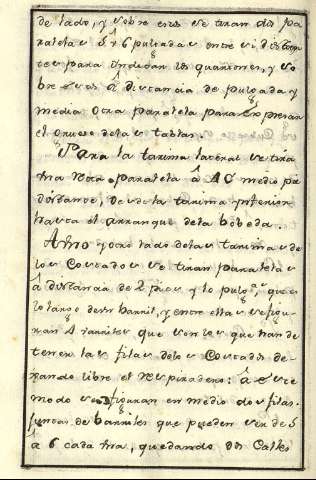 de lado, y sobre estos se tiran dos pa
ralelas 5 ó 6 pulgadas entre si distan
tes para indicar los quartones, y so
bre estos â distancia de pulgada y
media otra paralela para expresar
el grueso delas tablas.
Para la tarima lateral se tira
una paralela â 4 medio pie
distante, desde la tarima inferior
hasta el arranque dela bobeda.
A uno y otro lado delas tarimas de
los Costados se tiran paralelas
â distancia de 2 pies y 10 pulg.s que es
lo largo de un barril, y entre ellas se figu
ran 4 barriles que son los que han de
tener las filas delos Costados de
xando libre el respiradero: â este
modo se figuran en medio dos filas
juntas de barriles que pueden ser de 5
â 6 cada una, quedando dos Calles